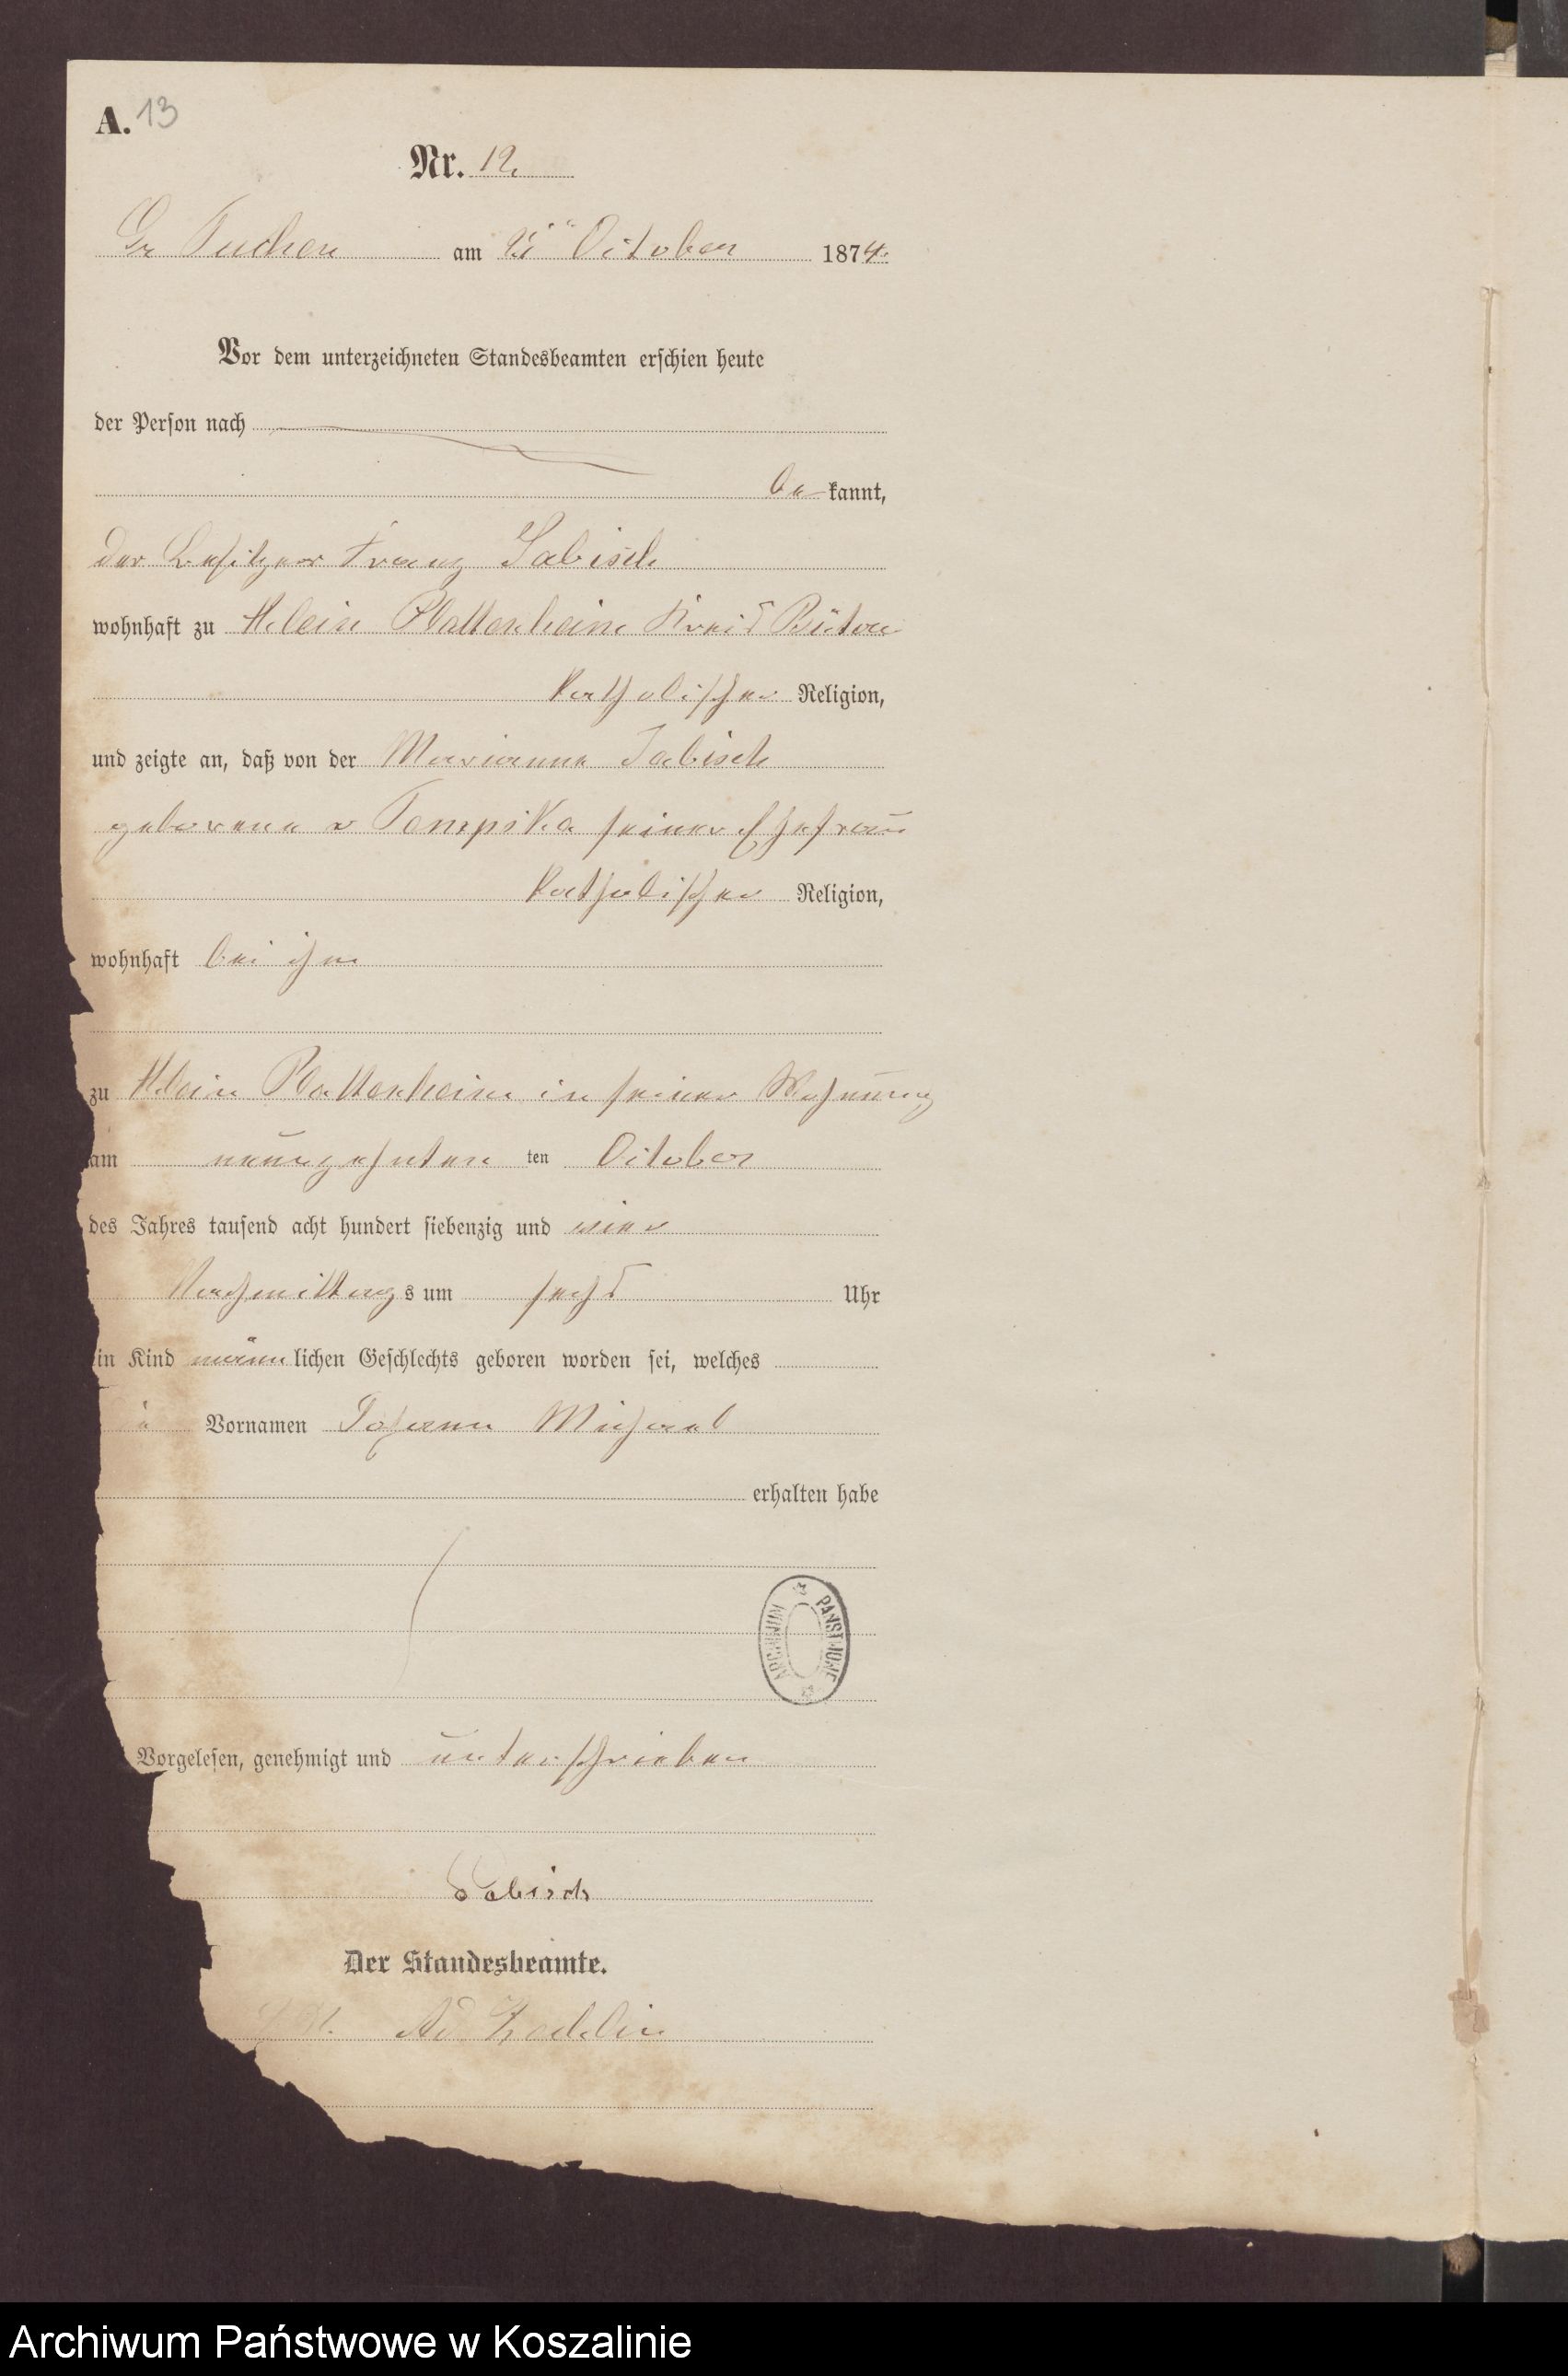 A. 13
Nr. 12.
Gr Tuchen am October 1874.
Vor dem unterzeichneten Standesbeamten erschien heute
der Person nach
be kannt,
der Besitzer Franz Jabisch
wohnhaft zu Klein Plattenheim Kreis Bütow
katholischer Religion,
und zeigte an, daß von der Marianna Jabisch
geborene v Tempska seiner Ehefrau
katholischer Religion,
wohnhaft bei ihm
zu Klein Plattenheim in seiner Wohnung
am neunzehnten ten October
des Jahres tausend acht hundert siebenzig und vier
Nachmittags um sechs Uhr
in Kind männlichen Geschlechts geboren worden sei, welches
Vornamen Johann Michael
erhalten habe
ARCHIWUM PAŃSTWOWE
Vorgelesen, genehmigt und unterschrieben
Jabisch
Der Standesbeamte.
Archiwum Państwowe w Koszalinie